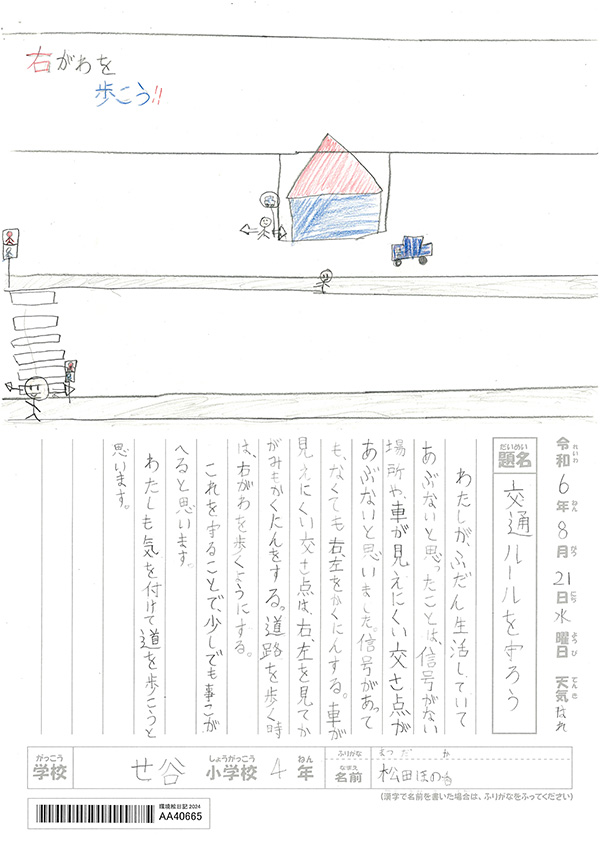 右がわを
歩こう!!
れいわ ねん がつ にち ようび てんき
令和6年8月21日水曜日 天気 はれ
だいめい
題名 交通ルールを守ろう
わたしが、ふだん生活していて
あぶないと思ったことは、信号がない
場所や、車が見えにくい交さ点が
あぶないと思いました。信号があって
も、なくても右、左をかくにんする。車が
見えにくい交さ点は、右、左を見てか
がみもかくにんをする。道路を歩く時
は、右がわを歩くようにする。
これを守ることで、少しでも事こが
へると思います。
わたしも気を付けて道を歩こうと
思います。
がっこう しょうがっこう ねん
学校 せ谷 小学校 4年
ふりがな まつだ
なまえ
名前 松田ほの香
(漢字で名前を書いた場合は、ふりがなをふってください)
環境絵日記 2024
AA40665